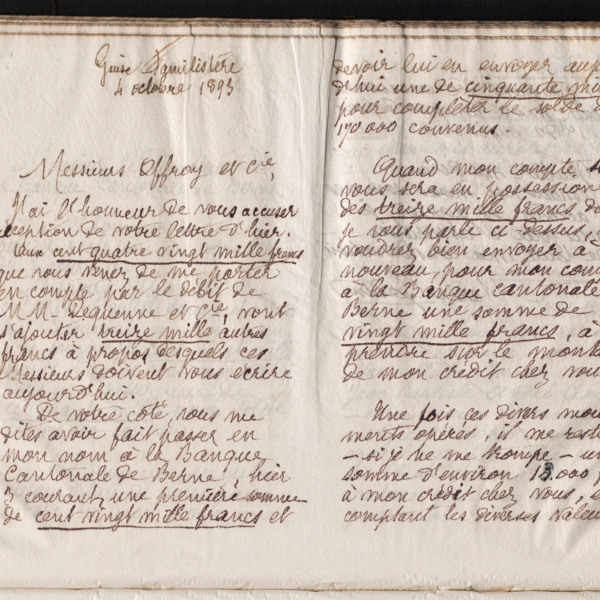 Guise Familistère
4 octobre 1893
Messieurs Offroy et Cie,
J'ai l'honneur de vous accuser
réception de votre lettre d'hier.
Aux cent quatre vingt mille francs
que vous venez de me porter
en compte par le débit de
MM. Dequenne et Cie, vont
s'ajouter treize mille autres
francs à propos desquels ces
Messieurs doivent vous écrire
aujourd'hui.
De votre côté vous me
dites avoir fait passer en
mon nom à la Banque
Cantonale de Berne, hier
3 courant, une première somme
de cent vingt mille francs et
devoir lui en envoyer aujo
d'hui une de cinquante mi
pour compléter le solde d
170 000 convenus.
Quand mon compte
vous sera en possession
des treize mille francs do
je vous parle ci-dessus,
voudrez bien envoyer à
nouveau, pour mon com
à la Banque cantonale
Berne une somme de
vingt mille francs, à
prendre sur le monta
de mon crédit chez vou
Une fois ces divers mou
ments opérés, il me reste
- si je ne me trompe - un
somme d'environ 13.000 f
à mon crédit chez vous, e
comptant les diverses valeu